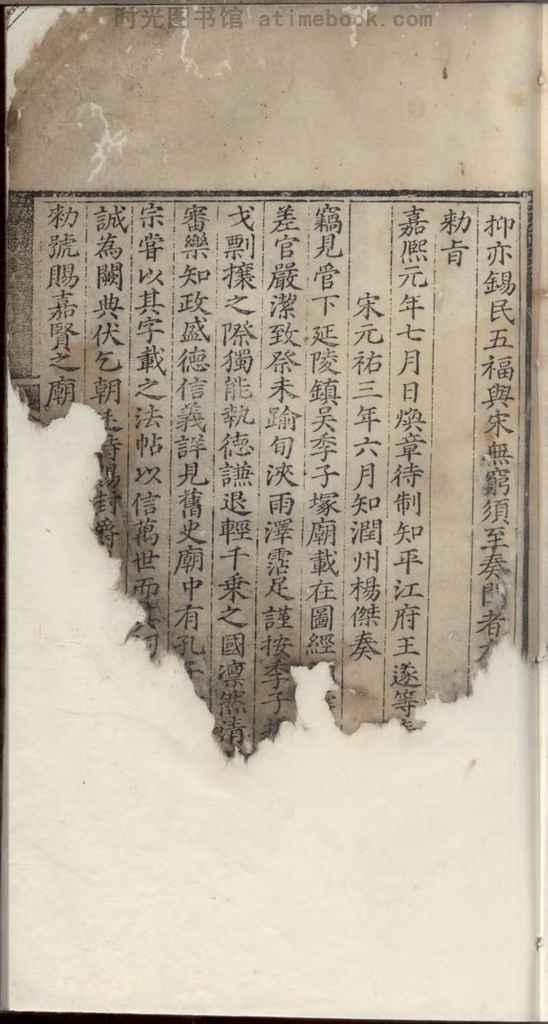 时光图书馆 atimebook.com
抑亦錫民五福與宋無窮須至奏聞者
勑旨
嘉熈元年七月日煥章待制知平江府王遂等
宋元祐三年六月知潤州楊傑奏
竊見管下延陵鎮吴季子塚廟載在圖經
差官嚴潔致祭未踰旬浹雨澤霑足謹按季子
戈剽攘之際獨能執德謙退輕千乗之國凛然清
審樂知政盛德信義詳見舊史廟中有孔子
宗甞以其字載之法帖以信萬世而
誠為闕典伏乞朝廷特賜封爵
勑號賜嘉賢之廟